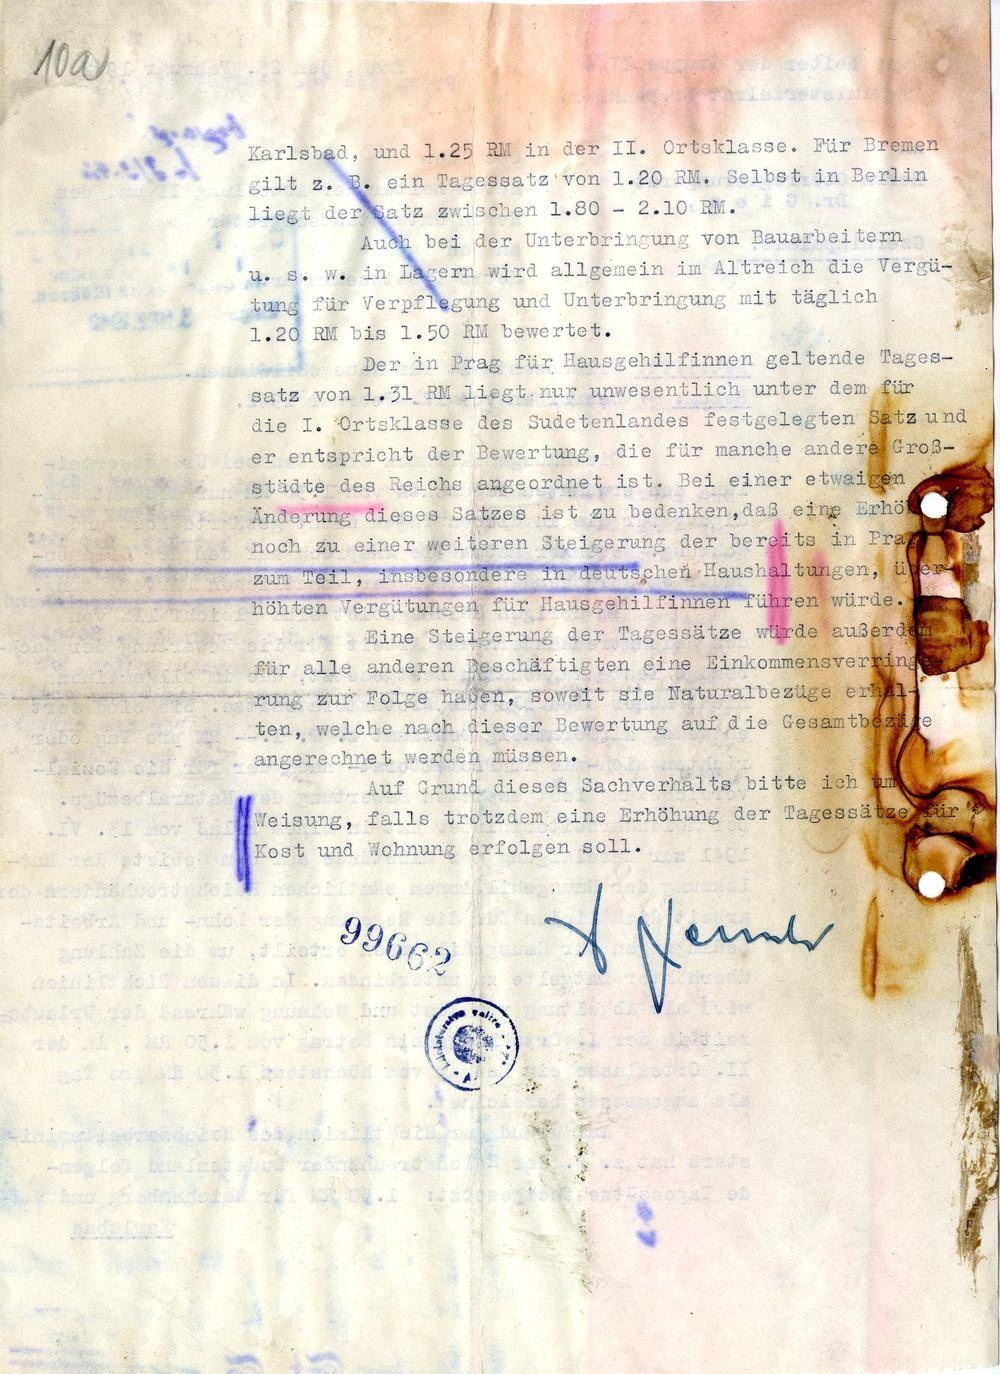 10a
Karlsbad, und 1.25 RM in der II. Ortsklasse. Für Bremen
gilt z. B. ein Tagessatz von 1.20 RM. Selbst in Berlin
liegt der Satz zwischen 1.80 - 2.10 RM.
Auch bei der Unterbringung von Bauarbeitern
u. s. w. in Lagern wird allgemein im Altreich die Vergü-
tung für Verpflegung und Unterbringung mit täglich
1.20 RM bis 1.50 RM bewertet.
Der in Prag für Hausgehilfinnen geltende Tages-
satz von 1.31 RM liegt nur unwesentlich unter dem für
die I. Ortsklasse des Sudetenlandes festgelegten Satz und
er entspricht der Bewertung, die für manche andere Groß-
städte des Reichs angeordnet ist. Bei einer etwaigen
Änderung dieses Satzes ist zu bedenken, daß eine Erhö
noch zu einer weiteren Steigerung der bereits in Prag
zum Teil, insbesondere in deutschen Haushaltungen, über-
höhten Vergütungen für Hausgehilfinnen führen würde.
Eine Steigerung der Tagessätze würde außerdem
für alle anderen Beschäftigten eine Einkommensverringe-
rung zur Folge haben, soweit sie Naturalbezüge erhal-
ten, welche nach dieser Bewertung auf die Gesamtbezüge
angerechnet werden müssen.
Auf Grund dieses Sachverhalts bitte ich um
Weisung, falls trotzdem eine Erhöhung der Tagessätze für
Kost und Wohnung erfolgen soll.
99662